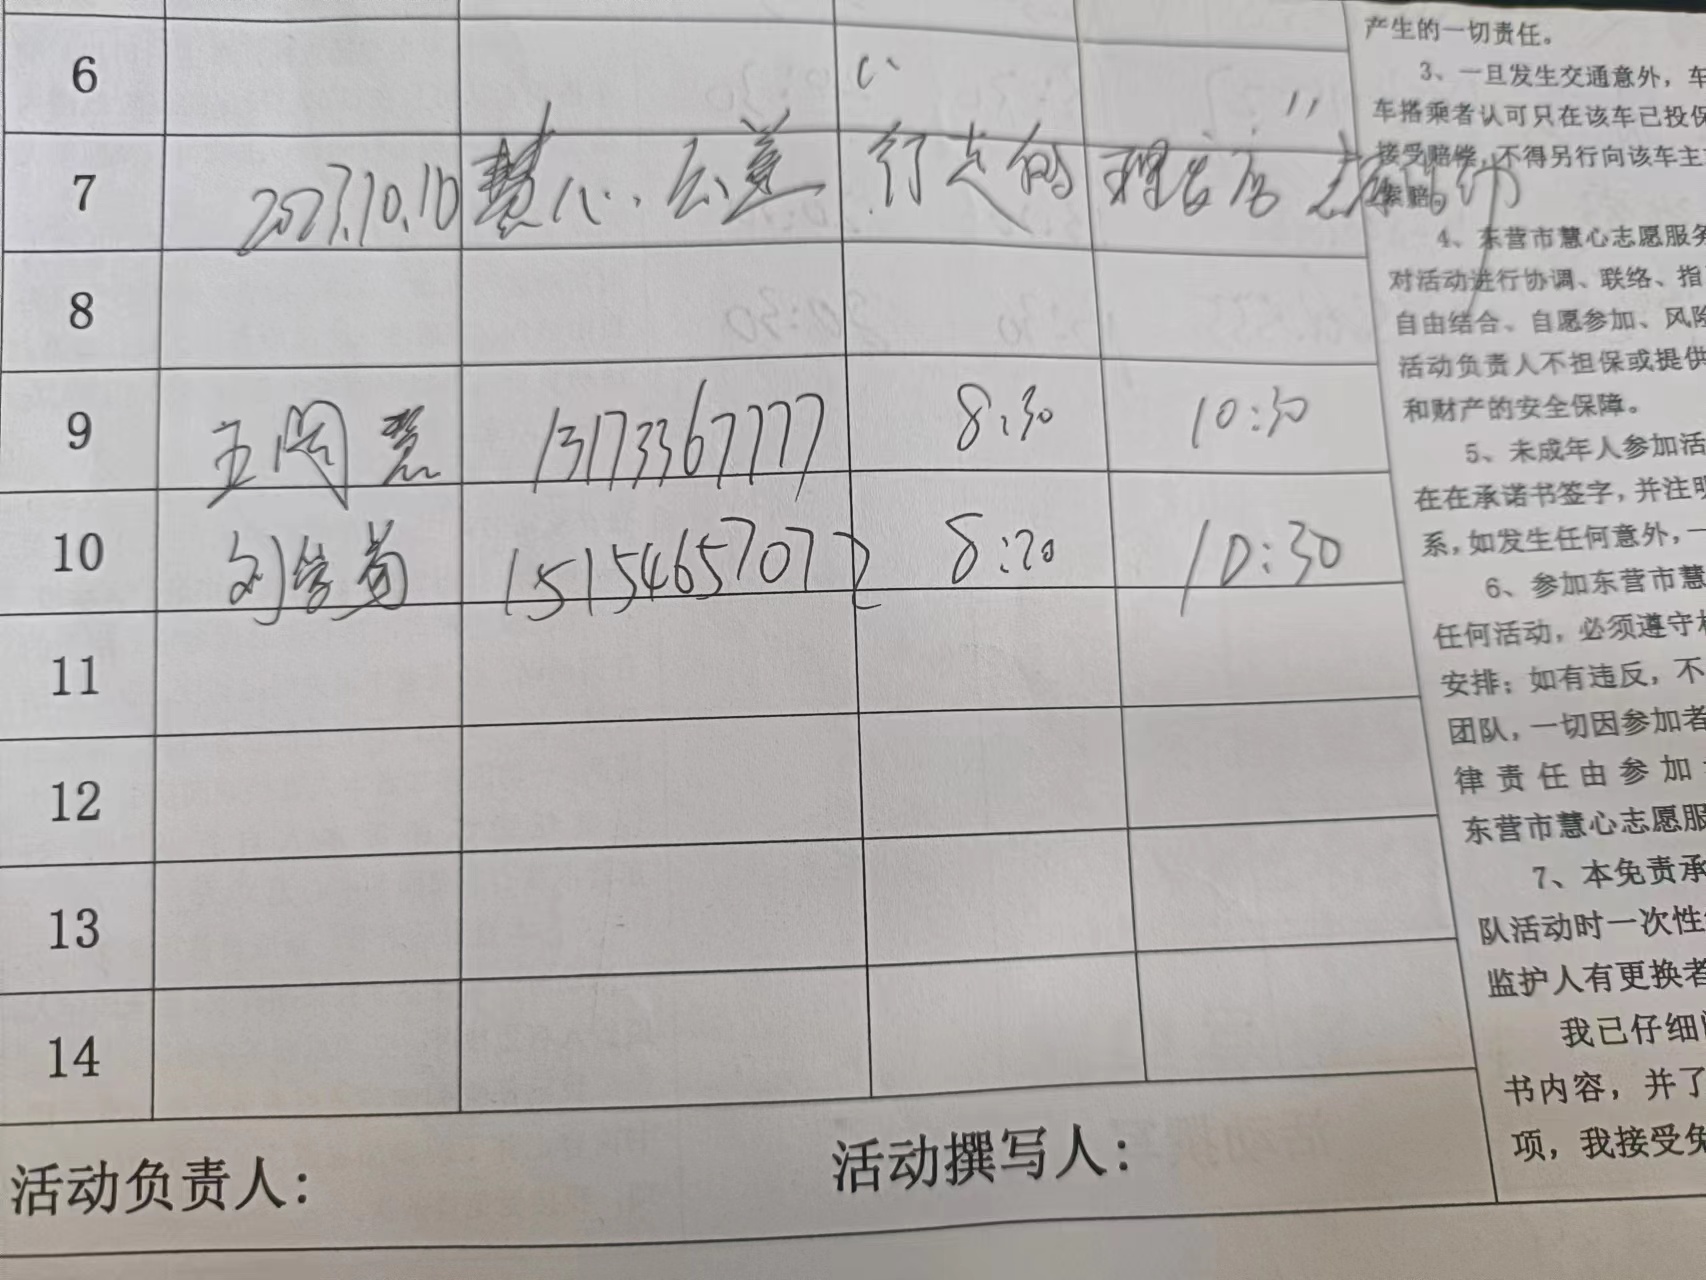 6
7 2023.10.10 慧心公益 “行走的理发店”志愿活动
8
9 王陶慧 13173367777 8:30 10:30
10 刘学菊 15154657072 8:20 10:30
11
12
13
14
活动负责人：
活动撰写人：
产生的一切责任。
3、一旦发生交通意外，车
车搭乘者认可只在该车已投保
接受赔偿，不得另行向该车主
索赔。
4、东营市慧心志愿服务
对活动进行协调、联络、指
自由结合、自愿参加、风险
活动负责人不担保或提供
和财产的安全保障。
5、未成年人参加活
在在承诺书签字，并注明
系，如发生任何意外，一
6、参加东营市慧
任何活动，必须遵守
安排；如有违反，不
团队，一切因参加者
律责任由参加
东营市慧心志愿服
7、本免责承
队活动时一次性
监护人有更换者
我已仔细
书内容，并了
项，我接受免